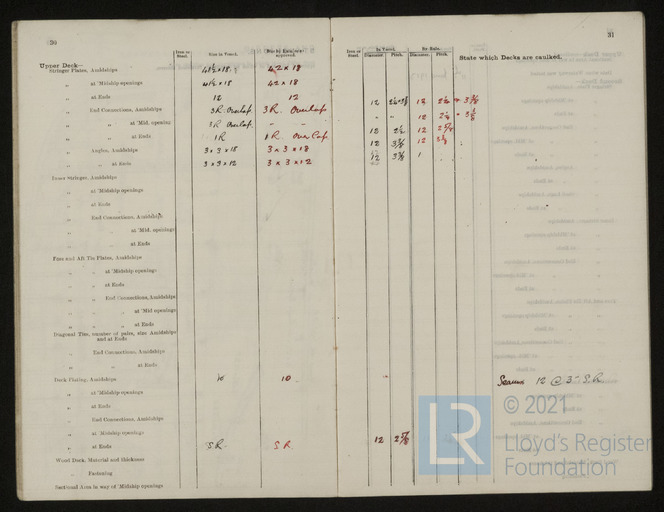 30
Iron or Steel.
Size in Vessel.
Size by Rule, or as approved.
Upper Deck—
Stringer Plates, Amidships 41½ × 18 42 × 18
„ at 'Midship openings 41½ × 18 42 × 18
„ at Ends 12 12
„ End Connections, Amidships 3R. Overlap 3R. Overlap
„ „ at 'Mid. opening 3R. Overlap - -
„ „ at Ends 1R 1R. Overlap
„ Angles, Amidships 3 × 3 × 18 3 × 3 × 18
„ „ at Ends 3 × 3 × 12 3 × 3 × 12
Inner Stringer, Amidships
„ at 'Midship openings
„ at Ends
„ End Connections, Amidships
„ „ at 'Mid. openings
„ „ at Ends
Fore and Aft Tie Plates, Amidships
„ „ at 'Midship openings
„ „ at Ends
„ „ End Connections, Amidships
„ „ „ at 'Mid openings
„ „ „ at Ends
Diagonal Ties, number of pairs, size Amidships and at Ends
„ End Connections, Amidships
„ „ at Ends
Deck Plating, Amidships 10 10
„ at 'Midship openings
„ at Ends
„ End Connections, Amidships
„ at 'Midship openings
„ at Ends S.R. S.R.
Wood Deck, Material and thickness
„ Fastening
Sectional Area in way of 'Midship openings
31
Iron or Steel.
In Vessel. By Rule.
Diameter. Pitch. Diameter. Pitch.
State which Decks are caulked.
12 12
- - 12
12 12
12 3⅜ 12
12 3⅜ 1
Seams 12 @ 3" S.R.
12 2⅞
LR
© 2021
Lloyd's Register
Foundation